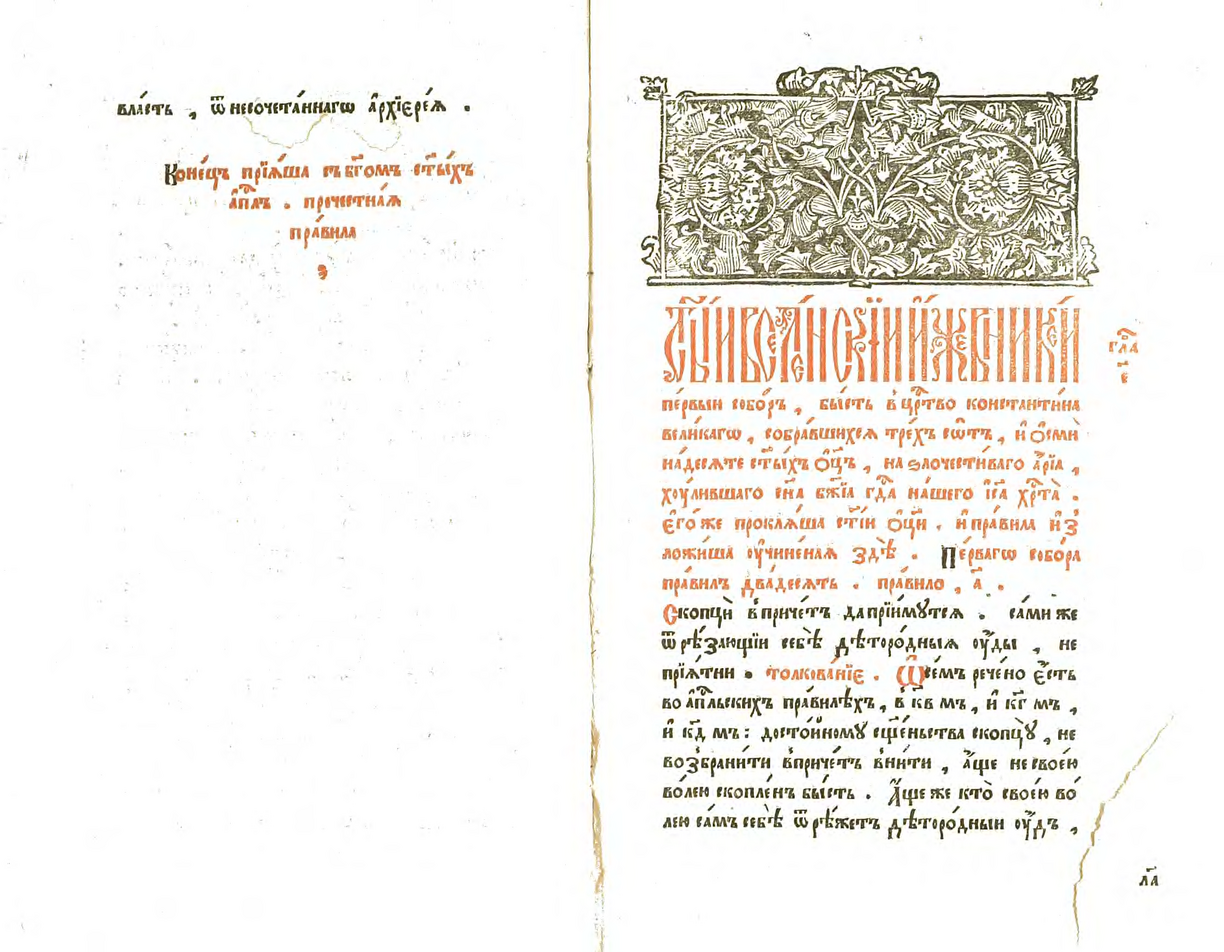 вла́сть , ѿнесочета́ннагѡ а҆рхїере́ѧ .
Коне́цъ прїѧ́ша събг҃омъ ст҃ы́хъ
а҆пⷭ҇лъ . пречестна́ѧ
пра́вила
ст҃ы́й вселе́нскїй и҆́же в̾нике́и
гла̀
є҃
пе́рвыи собо́ръ , бы́сть в̾црⷭ҇тво константи́на
вели́кагѡ , собра́вшихсѧ тре́хъ сѡ́тъ , и҆ о҆смѝ
на́десѧте ст҃ы́хъ о҆ц҃ъ , на ѕлочести́ваго а҆́рїа ,
хꙋ́лившаго сн҃а бж҃їа гдⷭ҇а на́шего і҆с҃а хрⷭ҇та̀ .
є҆го́же проклѧ́ша ст҃і́и о҆ц҃ы̀ . и҆пра́вила и҆з
ложи́ша ᲂу҆чине́наѧ здѣ̀ . Пе́рвагѡ собо́ра
пра́вилъ два́десѧть . пра́вило , а҃ .
Скопцы̀ в̾при́четъ дапрїи́мутсѧ . са́ми же
ѿрѣ́зающїи себѣ̀ дѣторо́дныѧ ᲂу҆́ды , не
прїѧ́тни . толкова́нїе . Ѡ҆се́мъ рече́но є҆́сть
во а҆пⷭ҇льскихъ пра́вилѣхъ , в̾ кв҃ мъ , и҆ кг҃ мъ ,
и҆ кд҃ мъ : досто́йному сщ҃е́ньства скопцꙋ̀ , не
возбрани́ти в̾при́четъ вни́ти , а҆́ще несвоею
во́лею скопле́нъ бы́сть . А҆́ще же кто̀ свое́ю во́
лею са́мъ себѣ̀ ѿрѣ́жетъ дѣторо́дныи ᲂу҆́дъ ,
л҃а